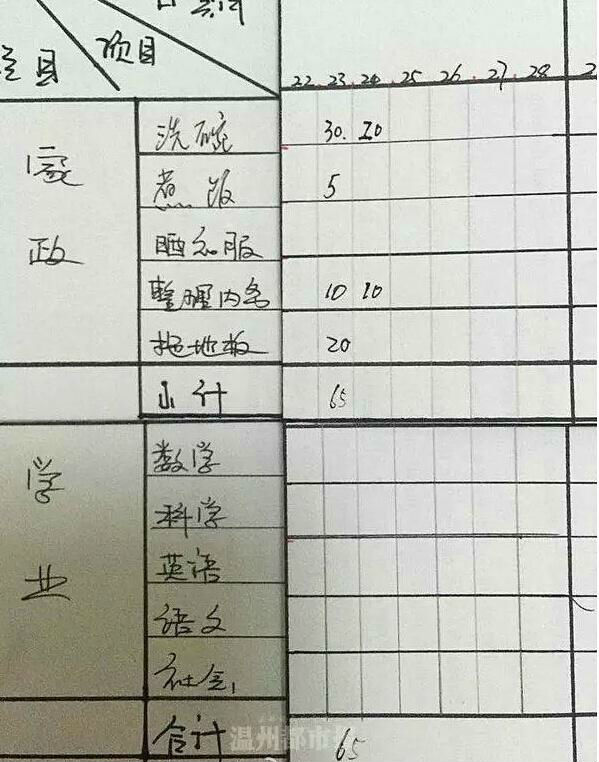 项目
22 23 24 25 26 27 28
家政
洗碗 30. 20
煮饭 5
晒衣服
整理内务 10 10
拖地板 20
小计 65
学业
数学
科学
英语
语文
社会
合计 65
温州都市